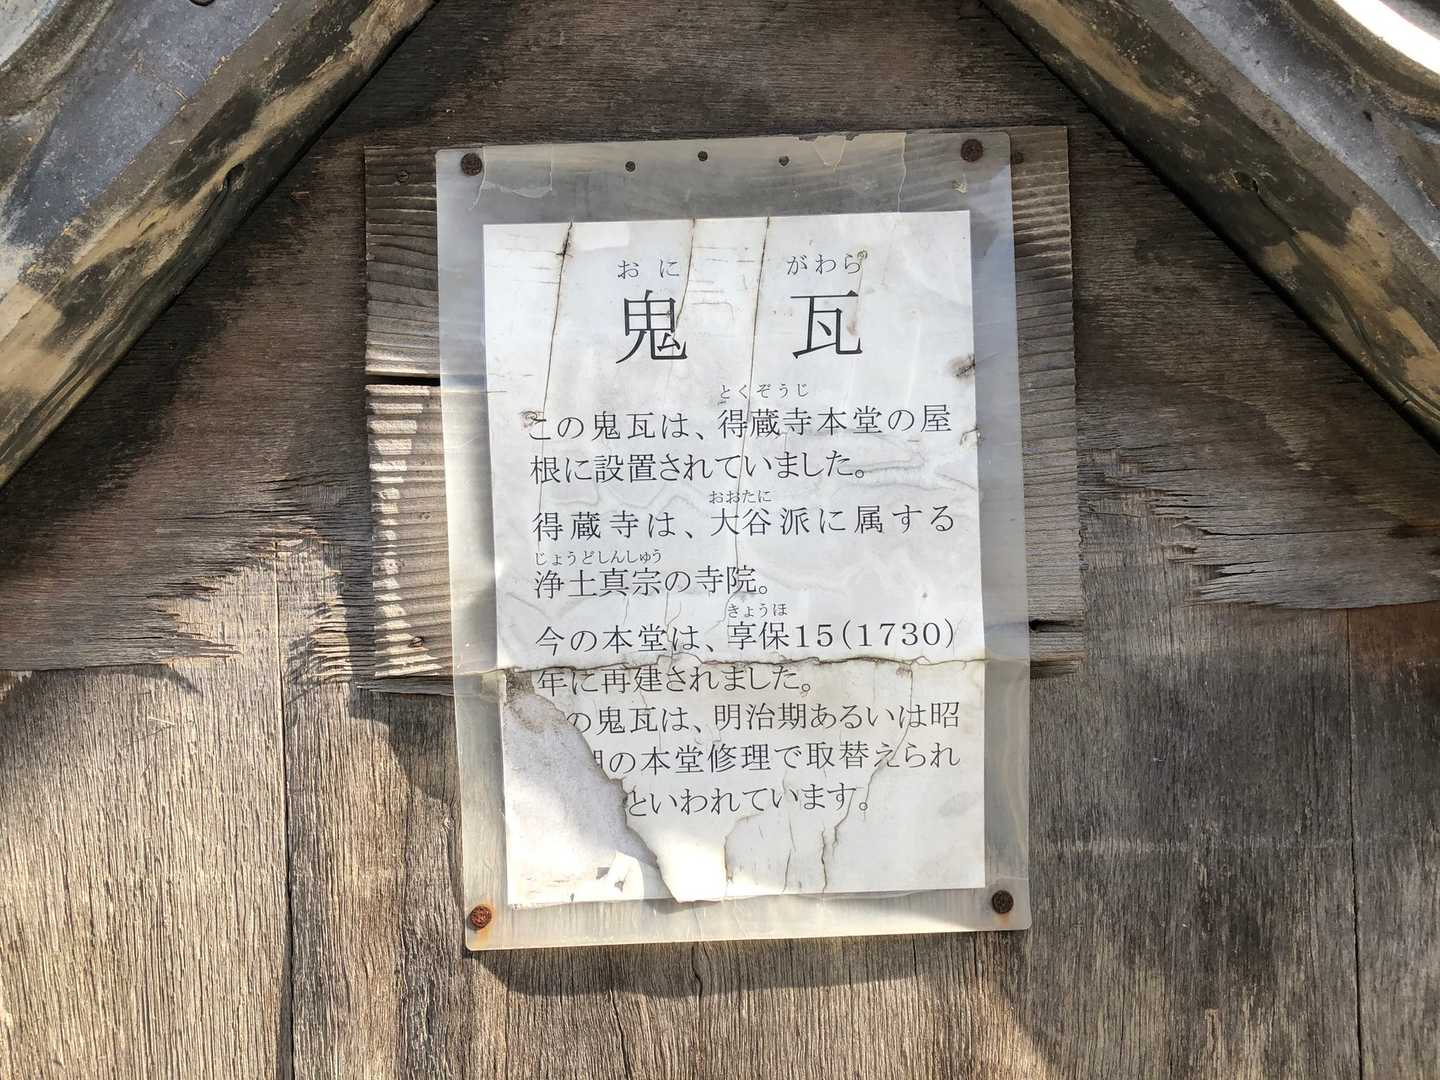 おに がわら
鬼 瓦
とくぞうじ
この鬼瓦は、得蔵寺本堂の屋
根に設置されていました。
おおたに
得蔵寺は、大谷派に属する
じょうどしんしゅう
浄土真宗の寺院。
きょうほ
今の本堂は、享保15(1730)
年に再建されました。
の鬼瓦は、明治期あるいは昭
の本堂修理で取替えられ
といわれています。